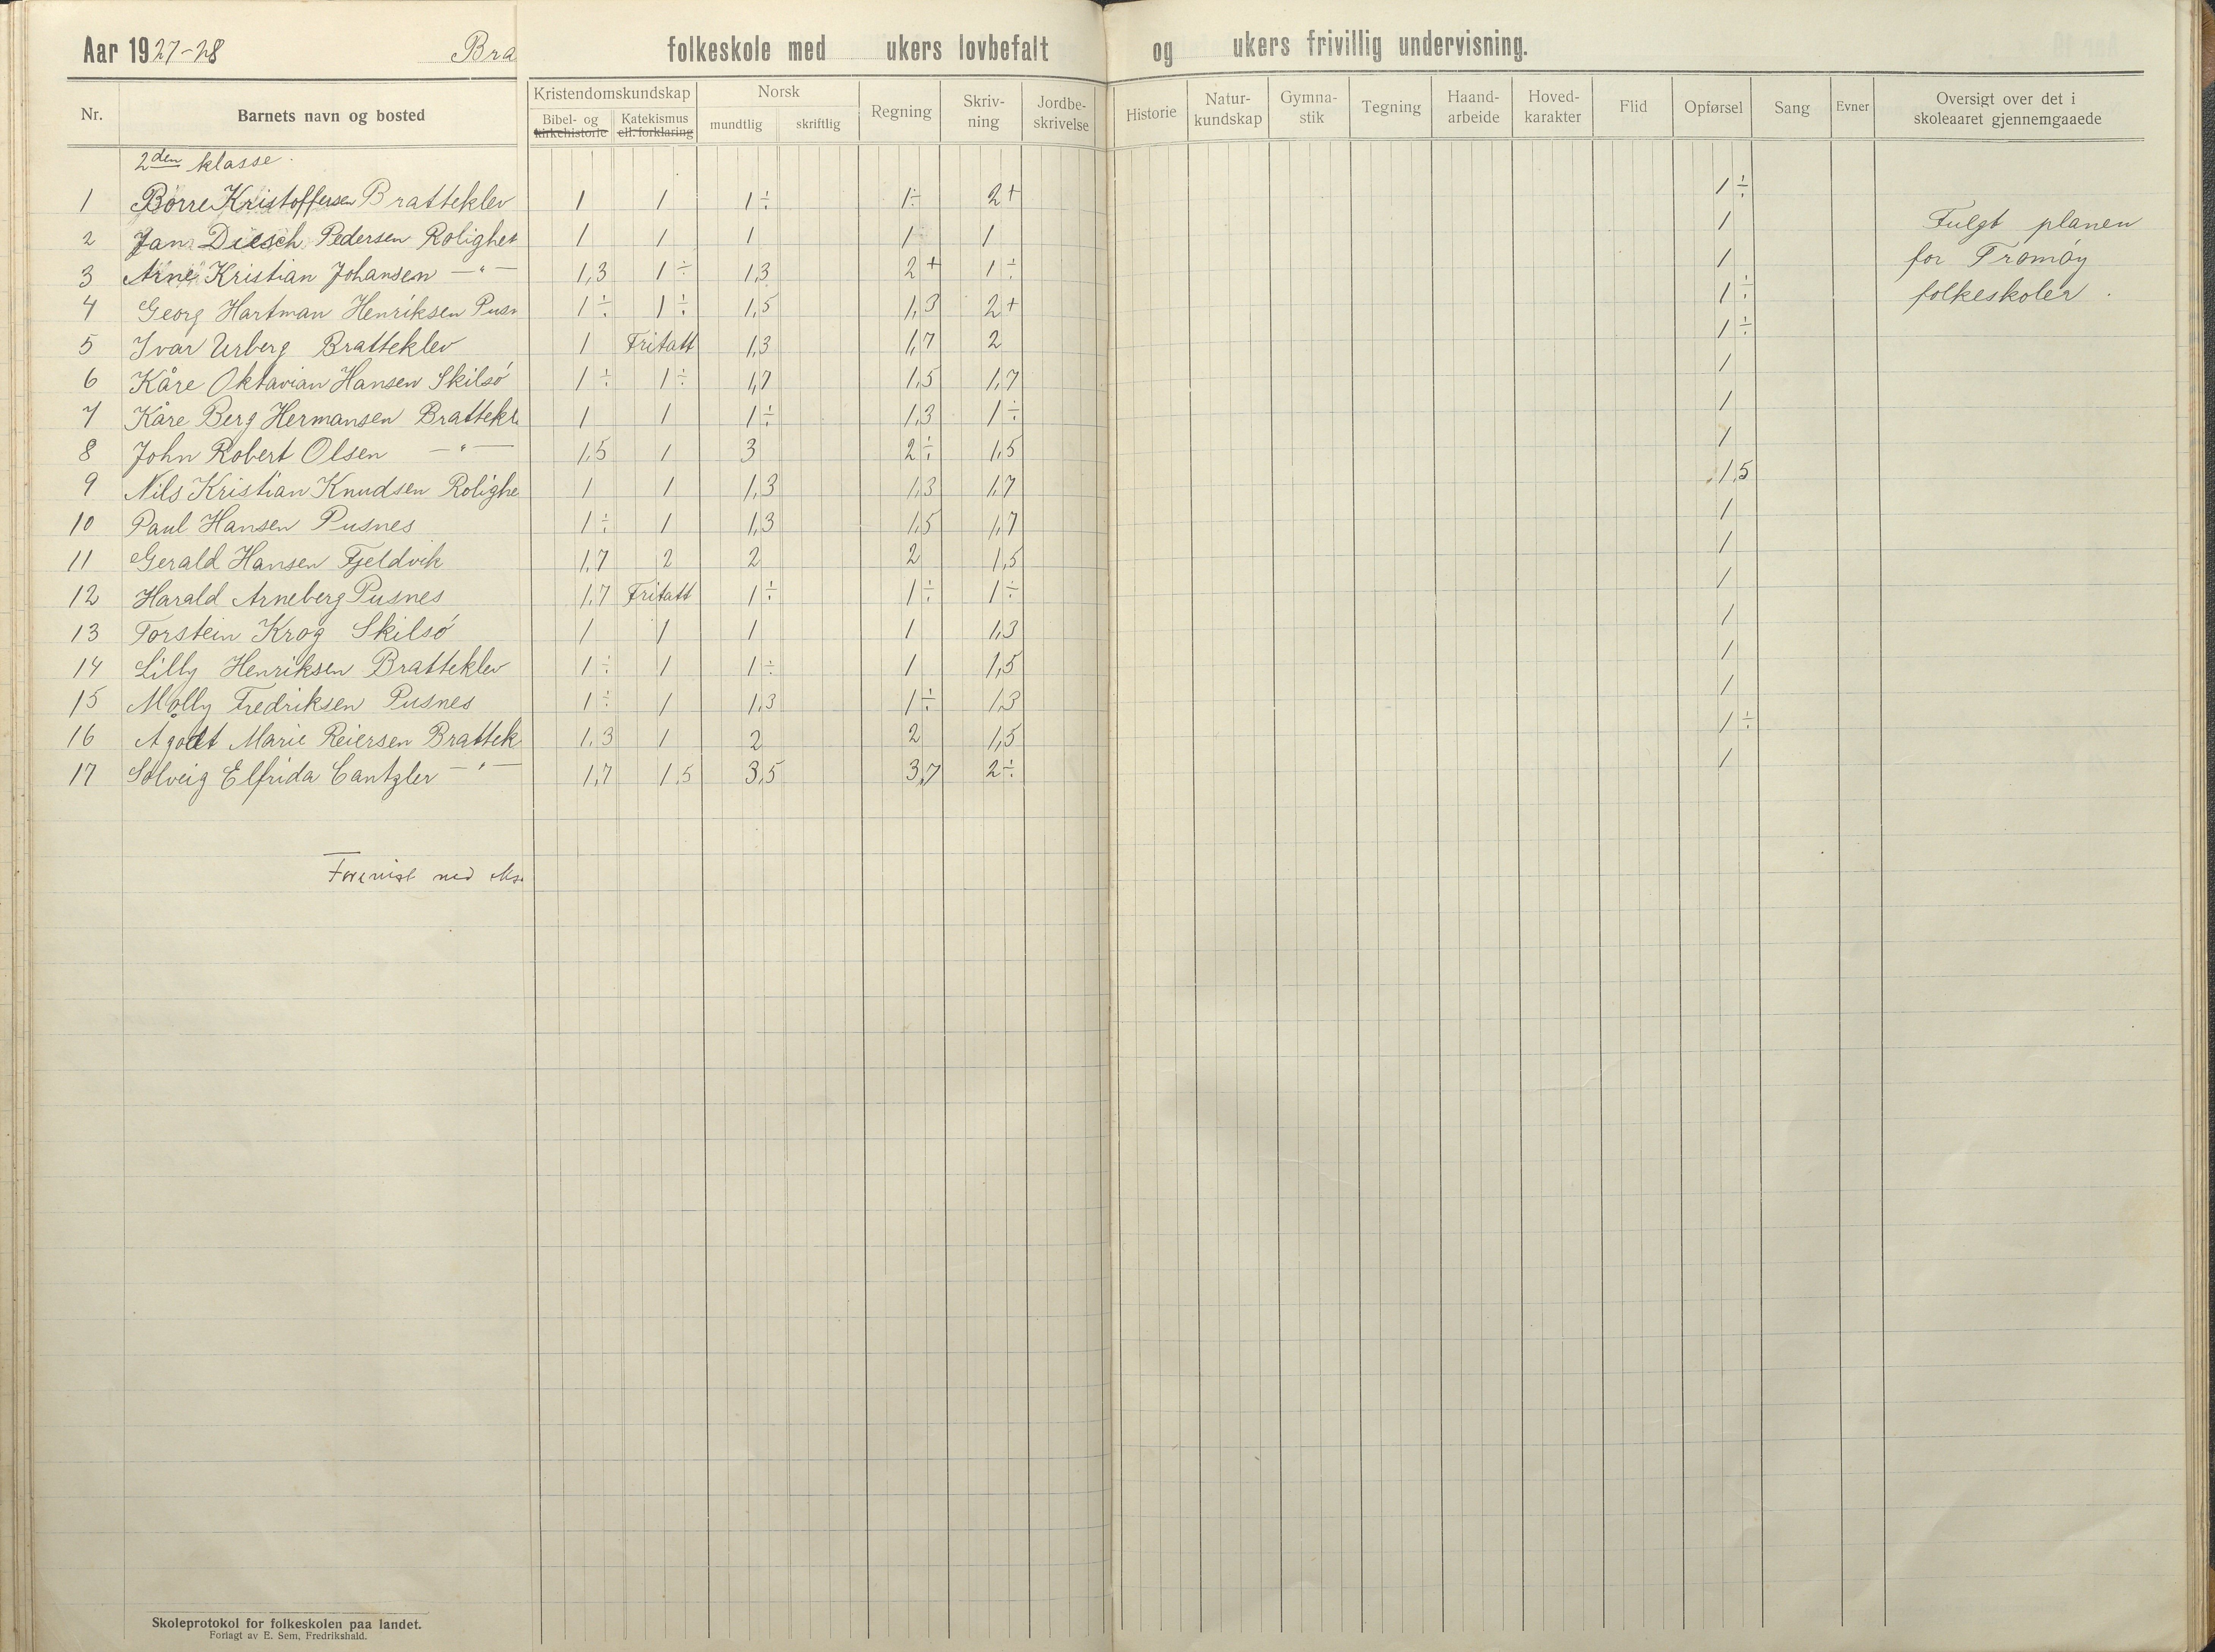 Aar 1927-28 Bra folkeskole med ukers lovbefalt og ukers frivillig undervisning.
Nr. Barnets navn og bosted Kristendomskundskap Bibel- og kirkehistorie Katekismus ell. forklaring Norsk mundtlig skriftlig Regning Skriv-ning Jordbe-skrivelse Historie Natur-kundskap Gymna-stik Tegning Haand-arbeide Hoved-karakter Flid Opførsel Sang Evner Oversigt over det i skoleaaret gjennemgaaede
2den klasse.
1 Børre Kristoffersen Bratteklev 1 1 1÷ 1÷ 2+ 1÷
2 Jan Diesch Pedersen Rolighet 1 1 1 1 1 1 Fulgt planen
3 Arne Kristian Johansen —"— 1,3 1÷ 1,3 2+ 1÷ 1 for Tromøy
4 Georg Hartman Henriksen Pusn 1÷ 1÷ 1,5 1,3 2+ 1÷ folkeskoler.
5 Ivar Urberg Bratteklev 1 Fritatt 1,3 1,7 2 1÷
6 Kåre Oktavian Hansen Skilsø 1÷ 1÷ 1,7 1,5 1,7 1
7 Kåre Berg Hermansen Brattekl 1 1 1÷ 1,3 1÷ 1
8 John Robert Olsen —"— 1,5 1 3 2÷ 1,5 1
9 Nils Kristian Knudsen Rolighe 1 1 1,3 1,3 1,7 1,5
10 Paul Hansen Pusnes 1÷ 1 1,3 1,5 1,7 1
11 Gerald Hansen Fjeldvik 1,7 2 2 2 1,5 1
12 Harald Arneberg Pusnes 1,7 Fritatt 1÷ 1÷ 1÷ 1
13 Torstein Krog Skilsø 1 1 1 1 1,3 1
14 Lilly Henriksen Bratteklev 1÷ 1 1÷ 1 1,5 1
15 Molly Fredriksen Pusnes 1÷ 1 1,3 1÷ 1,3 1
16 Ågodt Marie Reiersen Brattek 1,3 1 2 2 1,5 1÷
17 Solveig Elfrida Cantzler —"— 1,7 1,5 3,5 3,7 2÷ 1
Forevist ved
Skoleprotokol for folkeskolen paa landet.
Forlagt av E. Sem, Fredrikshald.